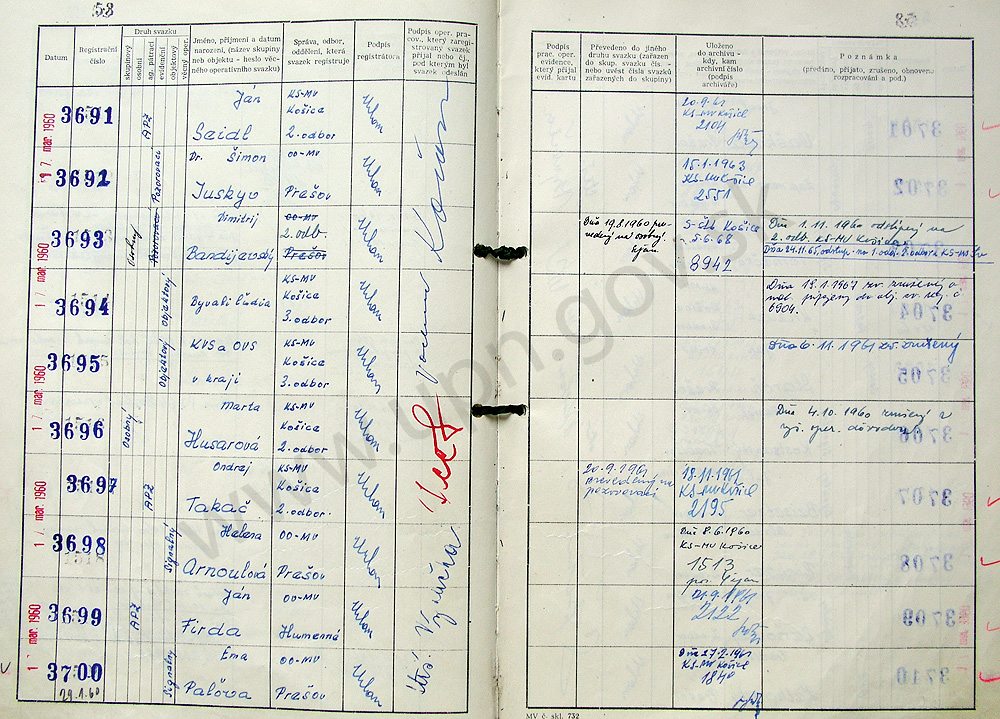 53
Datum
Registrační číslo
Druh svazku
skupinový
osobní
ag. pátrací
evidenční
objektový
věcný oper.
Jméno, příjmení a datum narození, (název skupiny neb objektu - heslo věcného operativního svazku)
Správa, odbor, oddělení, která svazek registruje
Podpis registrátora
Podpis oper. pracov., který zaregistrovaný svazek přijal nebo čj., pod kterým byl svazek odeslán
17. mar. 1960
3691
APZ
Ján
Seidl
KS-MV
Košice
2. odbor
Urban
3692
Pozorovací
Dr. Šimon
Juskyv
OO-MV
Prešov
Urban
17. mar. 1960
3693
Osobný
Dimitrij
Bandijevský
OO-MV
2. odb.
Prešov
Urban
17. mar. 1960
3694
Objektový
Byvalí ľudia
KS-MV
Košice
3. odbor
Urban
3695
Objektový
KVS a OVS
v kraji
KS-MV
Košice
3. odbor
Urban
17. mar. 1960
3696
Osobný
Marta
Husarová
KS-MV
Košice
2. odbor
Urban
17. mar. 1960
3697
APZ
Ondrej
Takač
KS-MV
Košice
2. odbor.
Urban
3698
Signálny
Helena
Arnoulová
OO-MV
Prešov
Urban
17. mar. 1960
3699
APZ
Ján
Firda
OO-MV
Humenné
Urban
3700
29.1.60
Signálny
Ema
Paľova
OO-MV
Prešov
Urban
Podpis prac. oper. evidence, který přijal evid. kartu
Převedeno do jiného druhu svazku (zařazen do skup. svazku čís. - nebo uvést čísla svazků zařazených do skupiny)
Uloženo do archivu - kdy, kam archivní číslo (podpis archiváře)
Poznámka
(předáno, přijato, zrušeno, obnoveno rozpracování a pod.)
20.9.61
KS-MV Košice
2104
15.1.1963
KS-MV Košice
2551
Dňa 19.8.1960 pre-
vedený na osobný.
S-ŠtB Košice
5.6.68
8942
Dňa 1.11.1960 odstúpený na
2. odb. KS-MV Košice
Dňa 24.11.65 odstup. na 1. odd. 2. odboru KS-MV
Dňa 19.1.1967 zv. zrušený a
mat. pripojený do obj. zv. reg. č.
6904.
Dňa 6.11.1961 zv. zrušený
Dňa 4.10.1960 zrušený z
oper. dôvodov
20.9.1961
prevedený na
pozorovací
18.11.1961
KS-MV Košice
2195
Dňa 8.6.1960
KS-MV Košice
1513
2122
Dňa 27.2.1961
KS-MV Košice
1840
MV č. skl. 732
www.upn.gov.sk